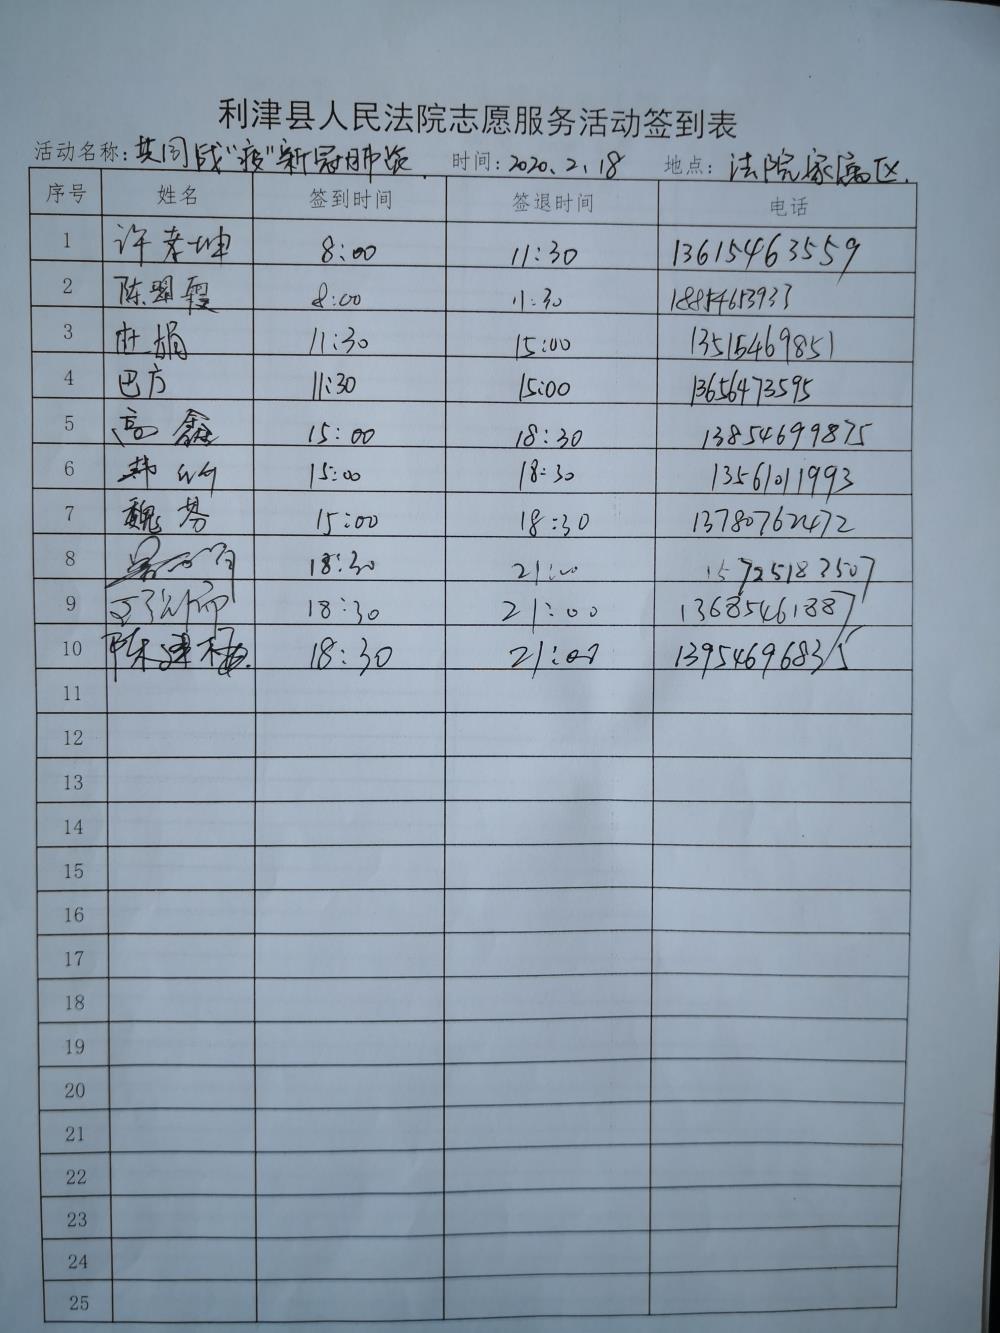 利津县人民法院志愿服务活动签到表
活动名称：共同战"疫"新冠肺炎. 时间：2020.2.18 地点：法院家属区.
序号 姓名 签到时间 签退时间 电话
1 许孝坤 8:00 11:30 13615463559
2 陈翠霞 8:00 11:30 18854613933
3 杜娟 11:30 15:00 13515469851
4 巴方 11:30 15:00 13656473595
5 高鑫 15:00 18:30 13854699875
6 15:00 18:30 13561011993
7 魏芬 15:00 18:30 13780762472
8 18:30 21:00 15725183507
9 18:30 21:00 13685461887
10 陈建梅 18:30 21:00 13954696835
11
12
13
14
15
16
17
18
19
20
21
22
23
24
25